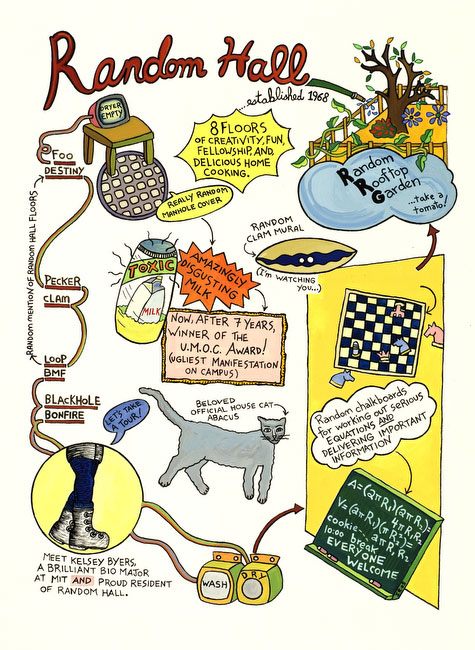 Random Hall
...established 1968
DRYER
EMPTY
8 FLOORS
OF CREATIVITY, FUN,
FELLOWSHIP, AND,
DELICIOUS HOME
COOKING.
Random
Rooftop
Garden
...take a
tomato!
FOO
DESTINY
PECKER
CLAM
LOOP
BMF
BLACKHOLE
BONFIRE
RANDOM MENTION OF RANDOM HALL FLOORS
REALLY RANDOM
MANHOLE COVER
RANDOM
CLAM MURAL
(I'M WATCHING
YOU...)
TOXIC
MILK
AMAZINGLY
DISGUSTING
MILK
NOW, AFTER 7 YEARS,
WINNER OF THE
U.M.O.C. AWARD!
(UGLIEST MANIFESTATION
ON CAMPUS)
LET'S TAKE
A TOUR!
BELOVED
OFFICIAL HOUSE CAT
ABACUS
Random chalkboards
for working out serious
EQUATIONS AND
DELIVERING IMPORTANT
INFORMATION
A=(2πR₁)(2πR₂)=
4πR₁R₂
V=(2πR₁)(πR₂²)=
cookie 2πR₁R₂
10:00 break
EVERYONE
WELCOME
MEET KELSEY BYERS,
A BRILLIANT BIO MAJOR
AT MIT AND PROUD RESIDENT
OF RANDOM HALL.
WASH
DRY